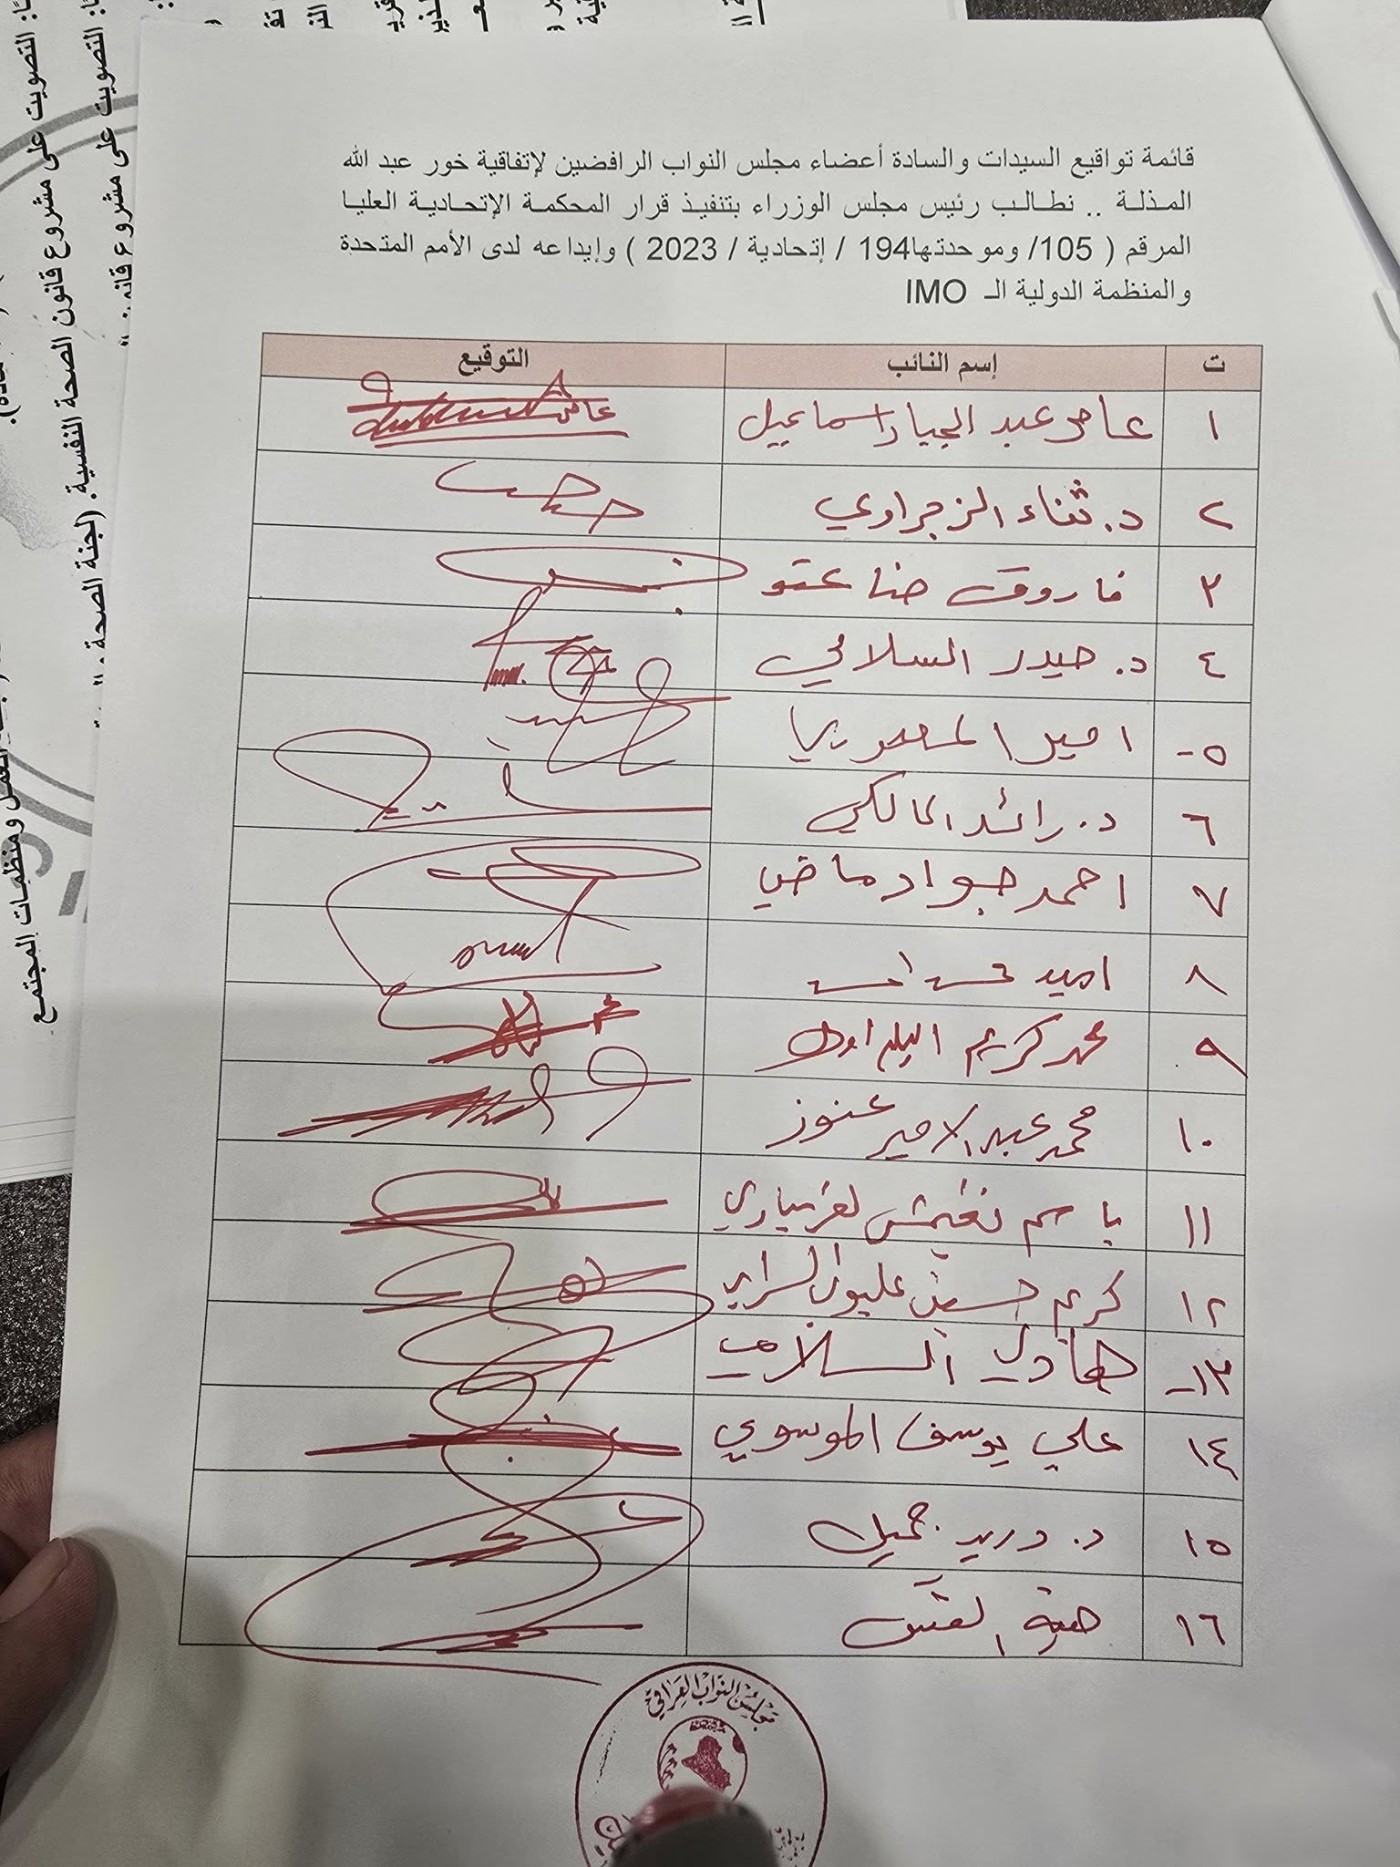 قائمة تواقيع السيدات والسادة أعضاء مجلس النواب الرافضين لإتفاقية خور عبد الله
المذلة .. نطالب رئيس مجلس الوزراء بتنفيذ قرار المحكمة الإتحادية العليا
المرقم ( 105/ وموحدتها194 / إتحادية / 2023 ) وإيداعه لدى الأمم المتحدة
والمنظمة الدولية الـ IMO
ت إسم النائب التوقيع
١ عامر عبد الجبار اسماعيل
٢ د. ثناء الزجراوي
٣ فاروق حنا عتو
٤ د. حيدر السلامي
٥- امير المعموري
٦ د. رائد المالكي
٧ احمد جواد ماضي
٨ امير
٩ محمد كريم
١٠ محمد عبد الامير عنوز
١١ باسم نغيمش الغريباوي
١٢ كريم حسين عليوي السراي
١٣- هادي السلامي
١٤ علي يوسف الموسوي
١٥ د. دريد جميل
١٦
مجلس النواب العراقي
التصويت على مشروع قانون الصحة النفسية. (لجنة الصحة
التصويت على مشروع
ومنظمات المجتمع